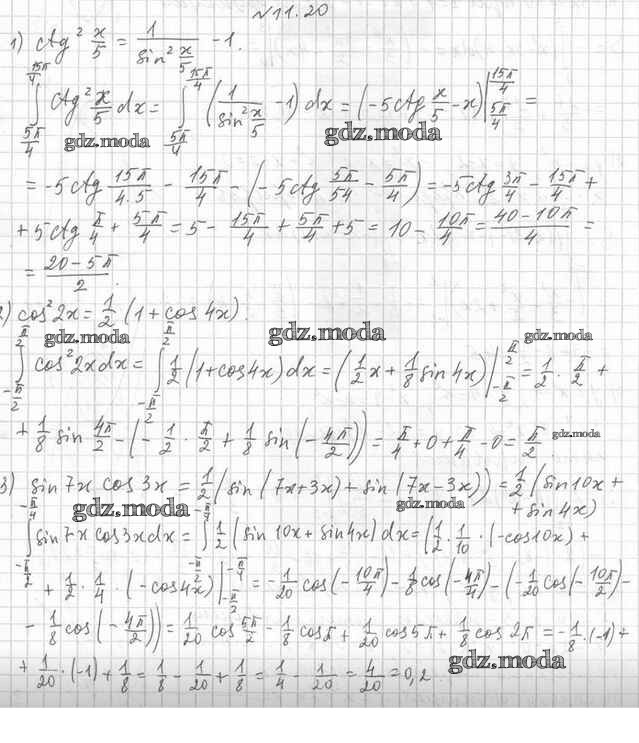 №11.20
1) ctg² x/5 = 1/(sin² x/5) - 1.
∫_{5π/4}^{15π/4} ctg² x/5 dx = ∫_{5π/4}^{15π/4} (1/(sin² x/5) - 1) dx = (-5ctg x/5 - x)|_{5π/4}^{15π/4} =
gdz.moda gdz.moda
= -5ctg 15π/(4·5) - 15π/4 - (-5ctg 5π/54 - 5π/4) = -5ctg 3π/4 - 15π/4 +
+ 5ctg π/4 + 5π/4 = 5 - 15π/4 + 5π/4 + 5 = 10 - 10π/4 = (40-10π)/4 =
= (20-5π)/2.
2) cos²2x = 1/2 (1 + cos 4x).
gdz.moda gdz.moda gdz.moda
∫_{-π/2}^{π/2} cos²2x dx = ∫_{-π/2}^{π/2} 1/2 (1+cos4x) dx = (1/2 x + 1/8 sin 4x)|_{-π/2}^{π/2} = 1/2 · π/2 +
+ 1/8 sin 4π/2 - (- 1/2 · π/2 + 1/8 sin (- 4π/2)) = π/4 + 0 + π/4 - 0 = π/2.
gdz.moda
3) sin 7x cos 3x = 1/2 (sin (7x+3x) + sin (7x-3x)) = 1/2 (sin10x +
+ sin 4x)
gdz.moda gdz.moda
∫_{-π/2}^{-π/4} sin 7x cos3x dx = ∫_{-π/2}^{-π/4} 1/2 (sin 10x + sin4x) dx = (1/2 · 1/10 · (-cos10x) +
+ 1/2 · 1/4 · (-cos4x))|_{-π/2}^{-π/4} = - 1/20 cos (- 10π/4) - 1/8 cos (- 4π/4) - (- 1/20 cos (- 10π/2) -
- 1/8 cos (- 4π/2)) = 1/20 cos 5π/2 - 1/8 cos π + 1/20 cos 5π + 1/8 cos 2π = - 1/8 · (-1) +
+ 1/20 · (-1) + 1/8 = 1/8 - 1/20 + 1/8 = 1/4 - 1/20 = 4/20 = 0,2
gdz.moda